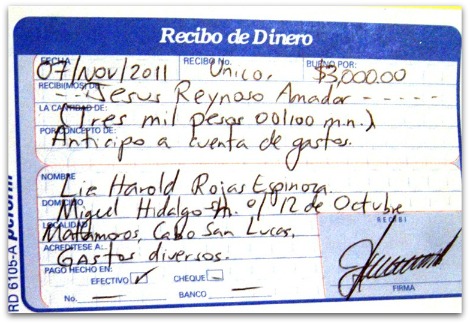 Recibo de Dinero
FECHA RECIBO No. BUENO POR:
07/Nov/2011 Unico. $3,000.00
RECIBI(MOS) DE:
Jesus Reynoso Amador
LA CANTIDAD DE:
(Tres mil pesos 00/100 m.n.)
POR CONCEPTO DE:
Anticipo a cuenta de gastos.
NOMBRE
Lie Harold Rojas Espinoza.
DOMICILIO
Miguel Hidalgo 12 de Octubre
LOCALIDAD
Matamoros, Cabo San Lucas.
ACREDITESE A:
Gastos diversos.
RECIBI
PAGO HECHO EN:
EFECTIVO ✓ CHEQUE
No. BANCO
FIRMA
RD 6105-A